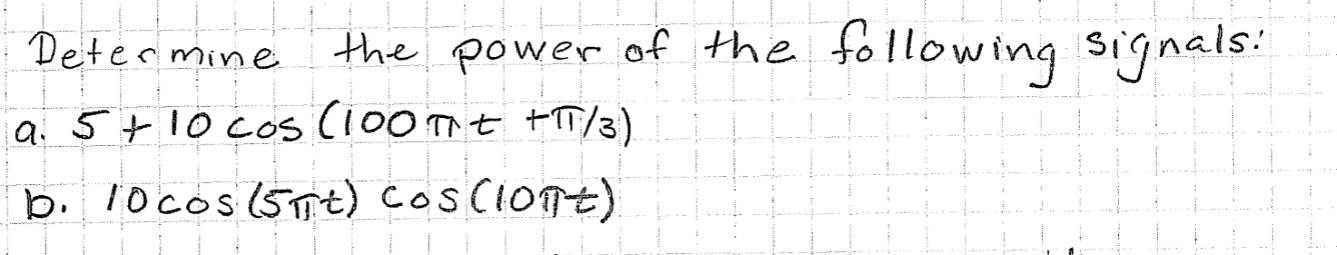 Determine the power of the following signals:
a. 5 + 10 cos (100πt + π/3)
b. 10cos(5πt) cos(10πt)